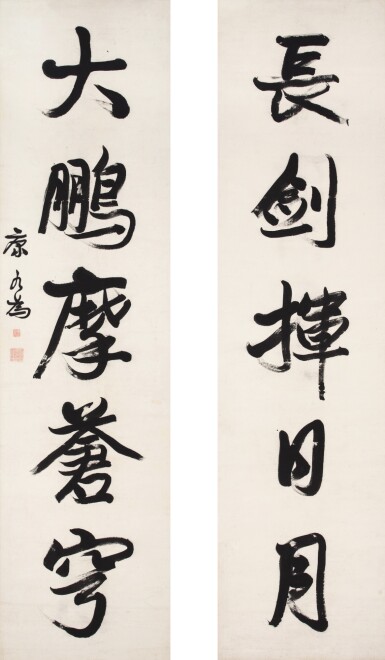 長劍揮日月
大鵬摩蒼穹
康有為